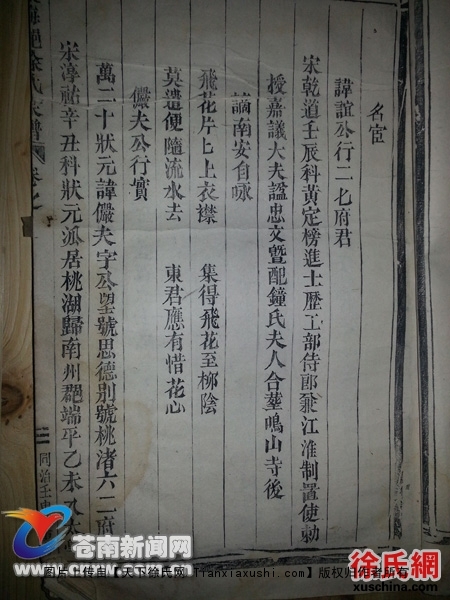 名宦
諱誼公行二七府君
宋乾道壬辰科黃定榜進士歷工部侍郎兼江淮制置使勅
授嘉議大夫諡忠文暨配鐘氏夫人合塟鳴山寺後
謫南安自咏
飛花片匕上衣襟 集得飛花至柳陰
莫遣便隨流水去 東君應有惜花心
儼夫公行實
萬二十狀元諱儼夫字公望號思德別號桃渚六二府
宋淳祐辛丑科狀元派居桃湖歸南州郡端平乙未入太
徐氏家譜 卷之一
同治壬申
苍南新闻网
图片上传自【天下徐氏网 tianxiaxushi.com】版权归作者所有
徐氏網
xuschina.com